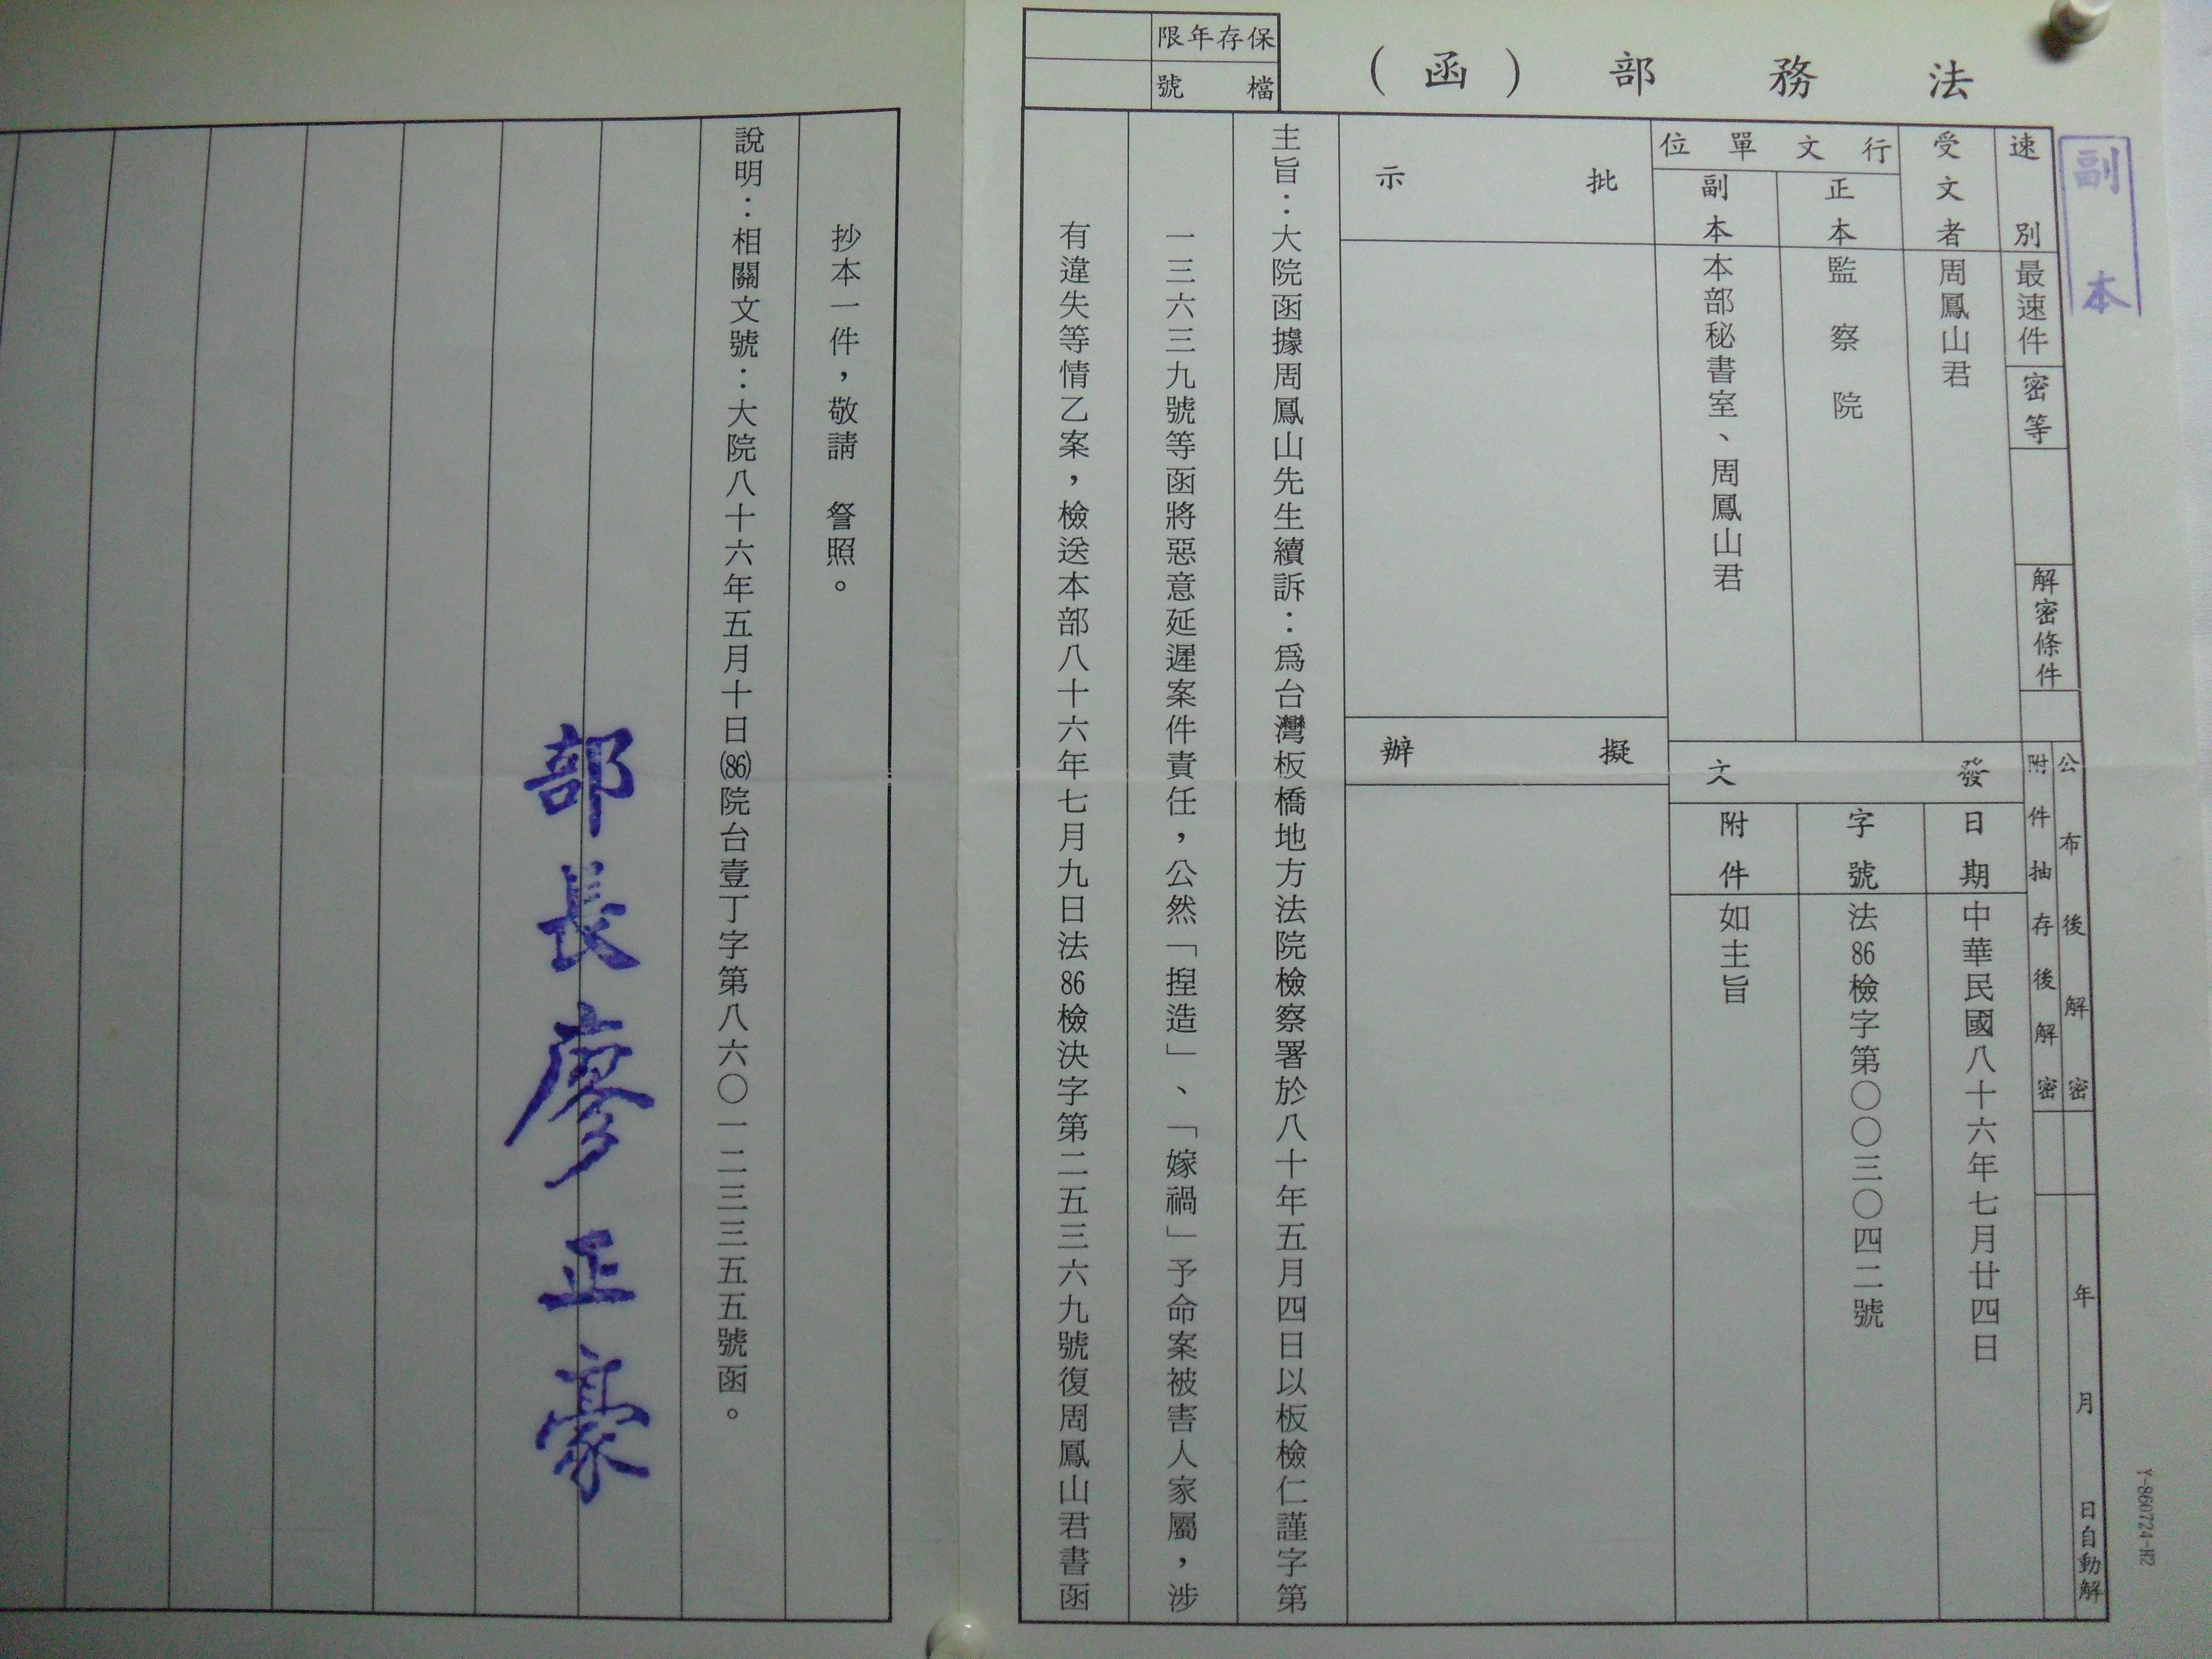 法務部（函）
保存年限
檔號
副本
速別
最速件
密等
解密條件
公布後解密
附件抽存後解密
年月日自動解
受文者
周鳳山君
行文單位
正本
監察院
副本
本部秘書室、周鳳山君
發文
日期
中華民國八十六年七月廿四日
字號
法86檢字第〇〇三〇四二號
附件
如主旨
批示
擬辦
主旨：大院函據周鳳山先生續訴：為台灣板橋地方法院檢察署於八十年五月四日以板檢仁謹字第
一三六三九號等函將惡意延遲案件責任，公然「捏造」、「嫁禍」予命案被害人家屬，涉
有違失等情乙案，檢送本部八十六年七月九日法86檢決字第二五三六九號復周鳳山君書函
抄本一件，敬請　詧照。
說明：相關文號：大院八十六年五月十日(86)院台壹丁字第八六〇一二三三五五號函。
部長廖正豪
Y-860724-H2